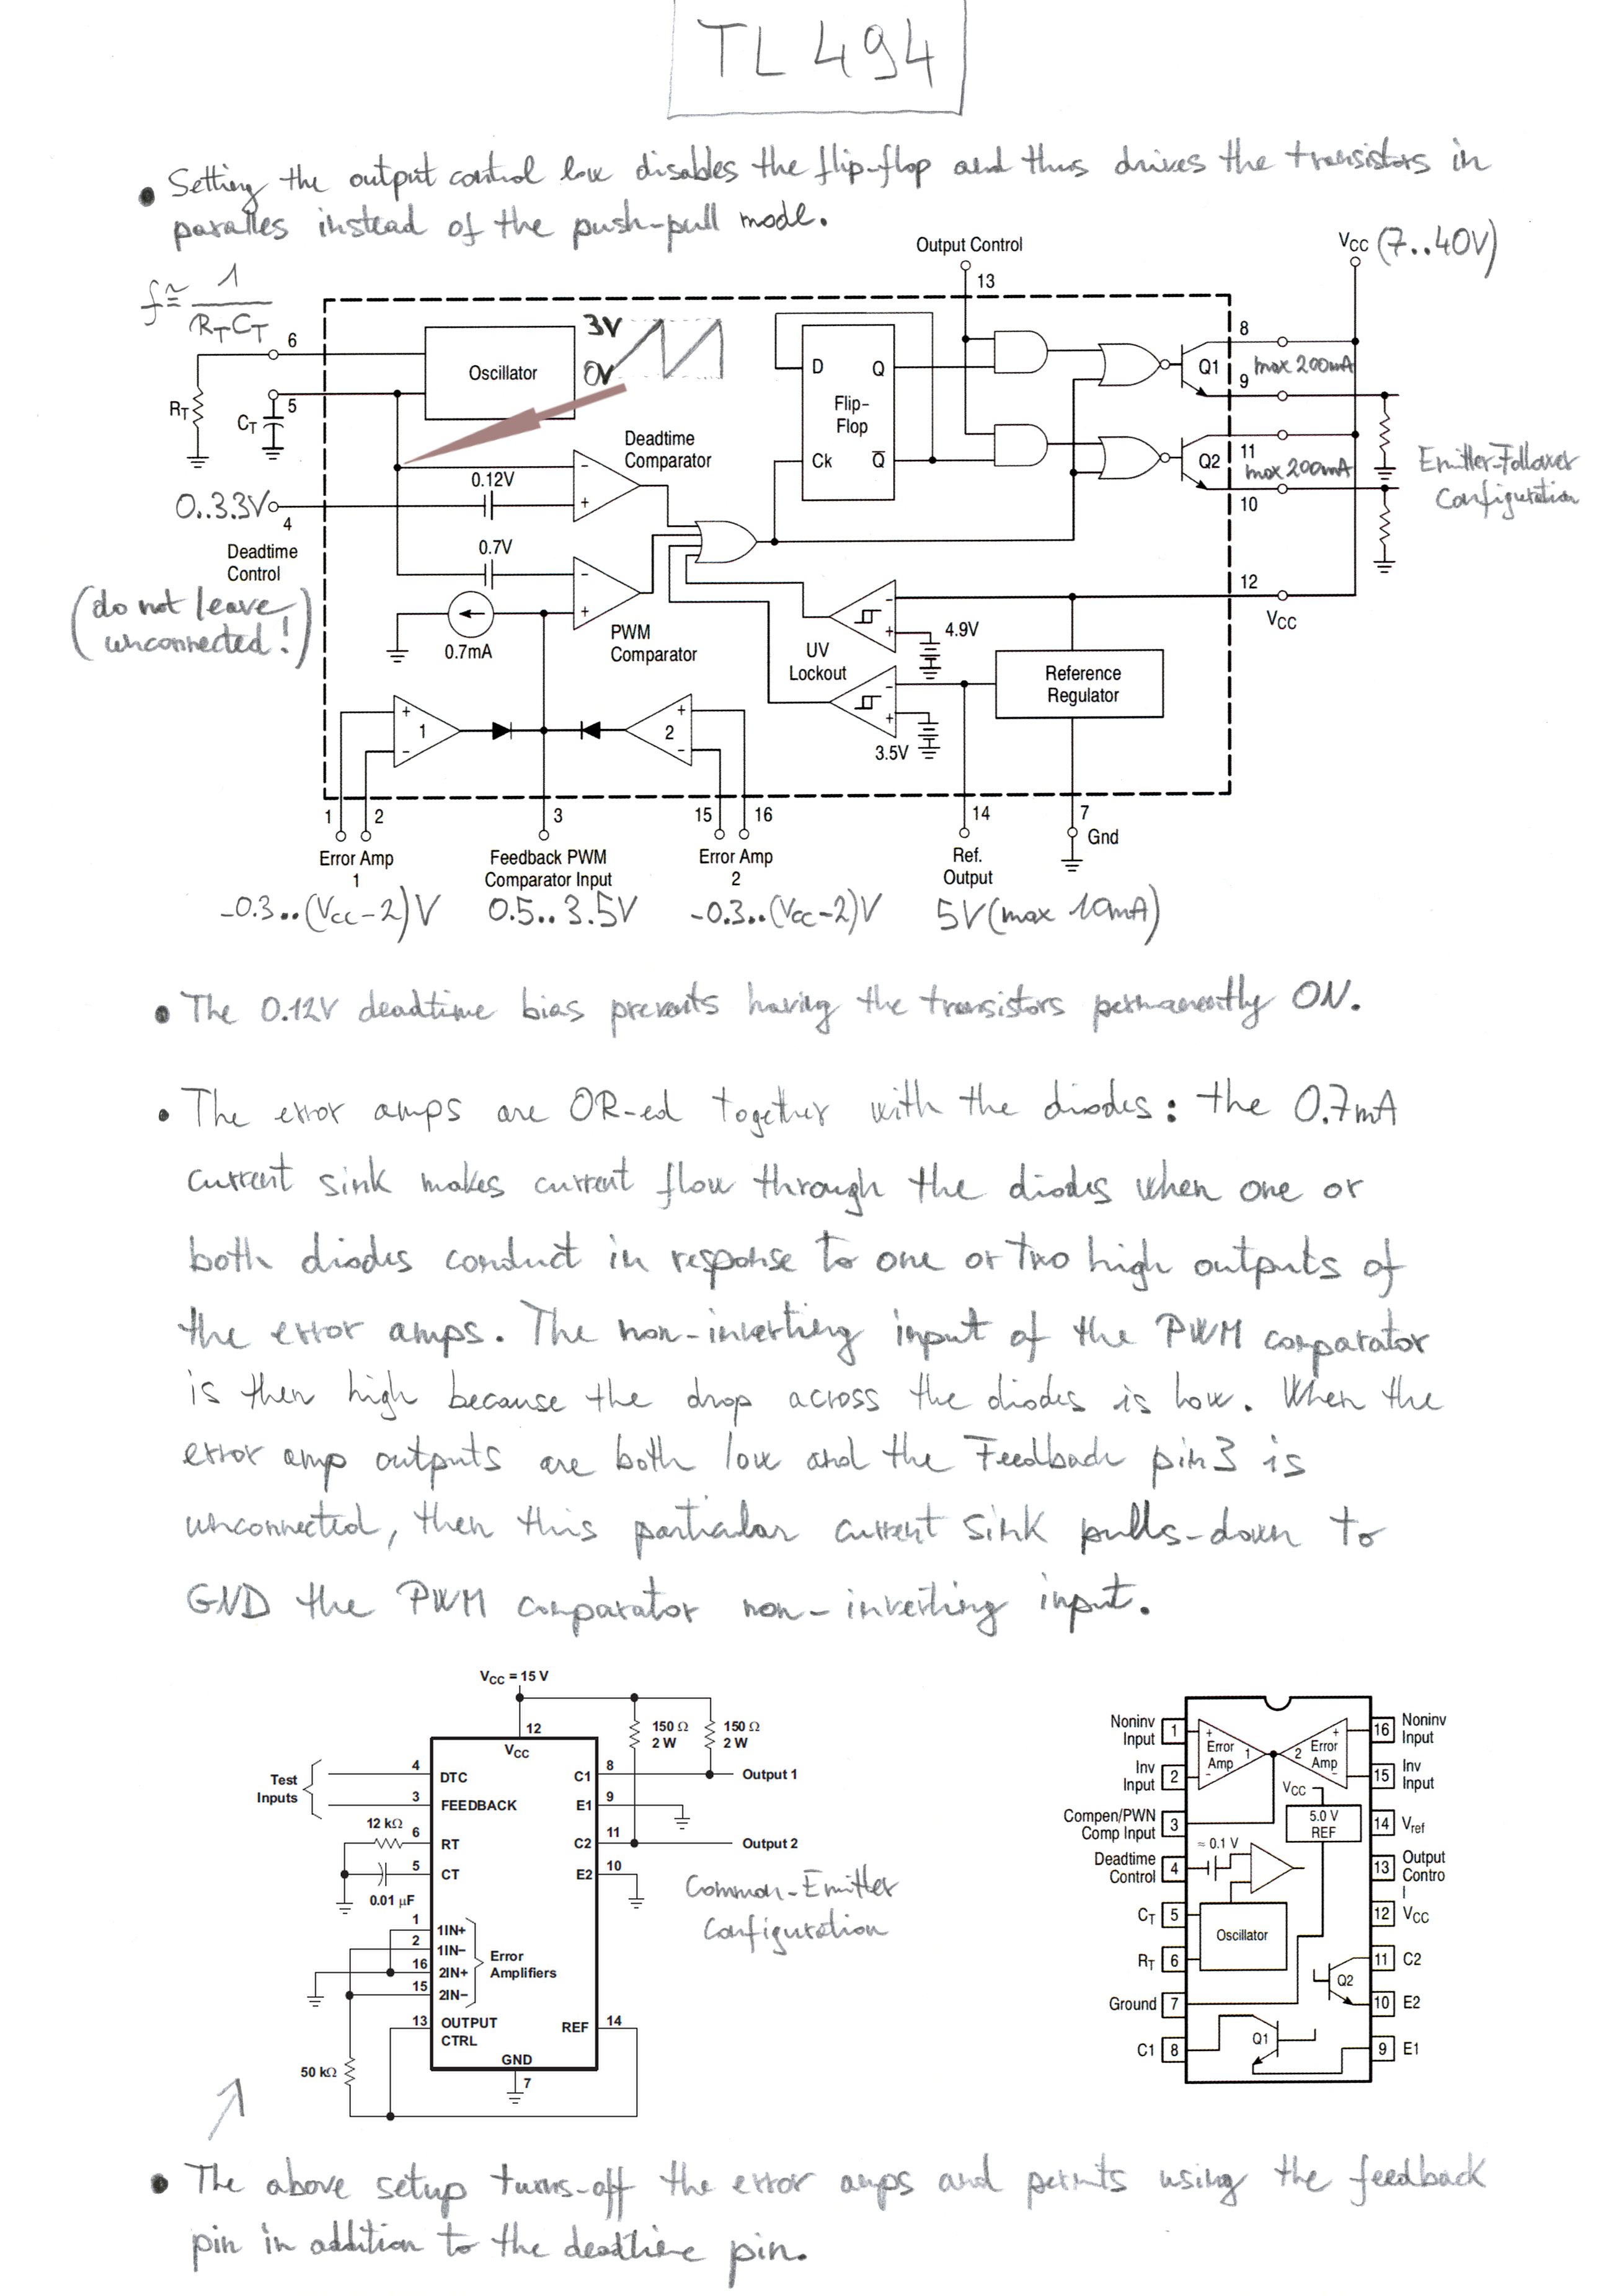 TL494
• Setting the output control low disables the flip-flop and thus drives the transistors in
paralles instead of the push-pull mode.
Output Control
VCC (7..40V)
13
f ≅ 1
RTCT
6
3V
0V
Oscillator
8
D Q
Q1
max 200mA
9
RT
CT
5
Flip-
Flop
Deadtime
Comparator
Ck Q̅
Q2
11
max 200mA
Emitter-Follower
Configuration
0.12V
0..3.3V
4
10
Deadtime
Control
0.7V
(do not leave
unconnected!)
12
VCC
0.7mA
PWM
Comparator
UV
Lockout
4.9V
Reference
Regulator
3.5V
1
2
1 2
3
15 16
14
7
Gnd
Error Amp
1
Feedback PWM
Comparator Input
Error Amp
2
Ref.
Output
-0.3..(VCC-2)V
0.5..3.5V
-0.3..(VCC-2)V
5V (max 10mA)
• The 0.12V deadtime bias prevents having the transistors permanently ON.
• The error amps are OR-ed together with the diodes: the 0.7mA
current sink makes current flow through the diodes when one or
both diodes conduct in response to one or two high outputs of
the error amps. The non-inverting input of the PWM comparator
is then high because the drop across the diodes is low. When the
error amp outputs are both low and the Feedback pin 3 is
unconnected, then this particular current sink pulls-down to
GND the PWM comparator non-inverting input.
VCC = 15 V
12
VCC
150 Ω
2 W
150 Ω
2 W
Test
Inputs
4
DTC
C1
8
Output 1
3
FEEDBACK
E1
9
12 kΩ
6
RT
C2
11
Output 2
5
CT
E2
10
0.01 μF
1
1IN+
2
1IN−
16
2IN+
15
2IN−
Error
Amplifiers
13
OUTPUT
CTRL
REF
14
50 kΩ
GND
7
Common-Emitter
Configuration
Noninv
Input
1
Inv
Input
2
Compen/PWN
Comp Input
3
Deadtime
Control
4
CT
5
RT
6
Ground
7
C1
8
+
Error
Amp
−
1
2
+
Error
Amp
−
VCC
5.0 V
REF
≈ 0.1 V
Oscillator
Q2
Q1
16
Noninv
Input
15
Inv
Input
14
Vref
13
Output
Contro
l
12
VCC
11
C2
10
E2
9
E1
• The above setup turns-off the error amps and permits using the feedback
pin in addition to the deadtime pin.